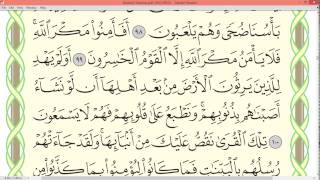 بَأْسُنَا ضُحًى وَهُمْ يَلْعَبُونَ ٩٨ أَفَأَمِنُوا۟ مَكْرَ ٱللَّهِ ۚ
فَلَا يَأْمَنُ مَكْرَ ٱللَّهِ إِلَّا ٱلْقَوْمُ ٱلْخَـٰسِرُونَ ٩٩ أَوَلَمْ يَهْدِ
لِلَّذِينَ يَرِثُونَ ٱلْأَرْضَ مِنۢ بَعْدِ أَهْلِهَآ أَن لَّوْ نَشَآءُ
أَصَبْنَـٰهُم بِذُنُوبِهِمْ ۚ وَنَطْبَعُ عَلَىٰ قُلُوبِهِمْ فَهُمْ لَا يَسْمَعُونَ
١٠٠ تِلْكَ ٱلْقُرَىٰ نَقُصُّ عَلَيْكَ مِنْ أَنۢبَآئِهَا ۚ وَلَقَدْ جَآءَتْهُمْ
رُسُلُهُم بِٱلْبَيِّنَـٰتِ فَمَا كَانُوا۟ لِيُؤْمِنُوا۟ بِمَا كَذَّبُوا۟ مِن